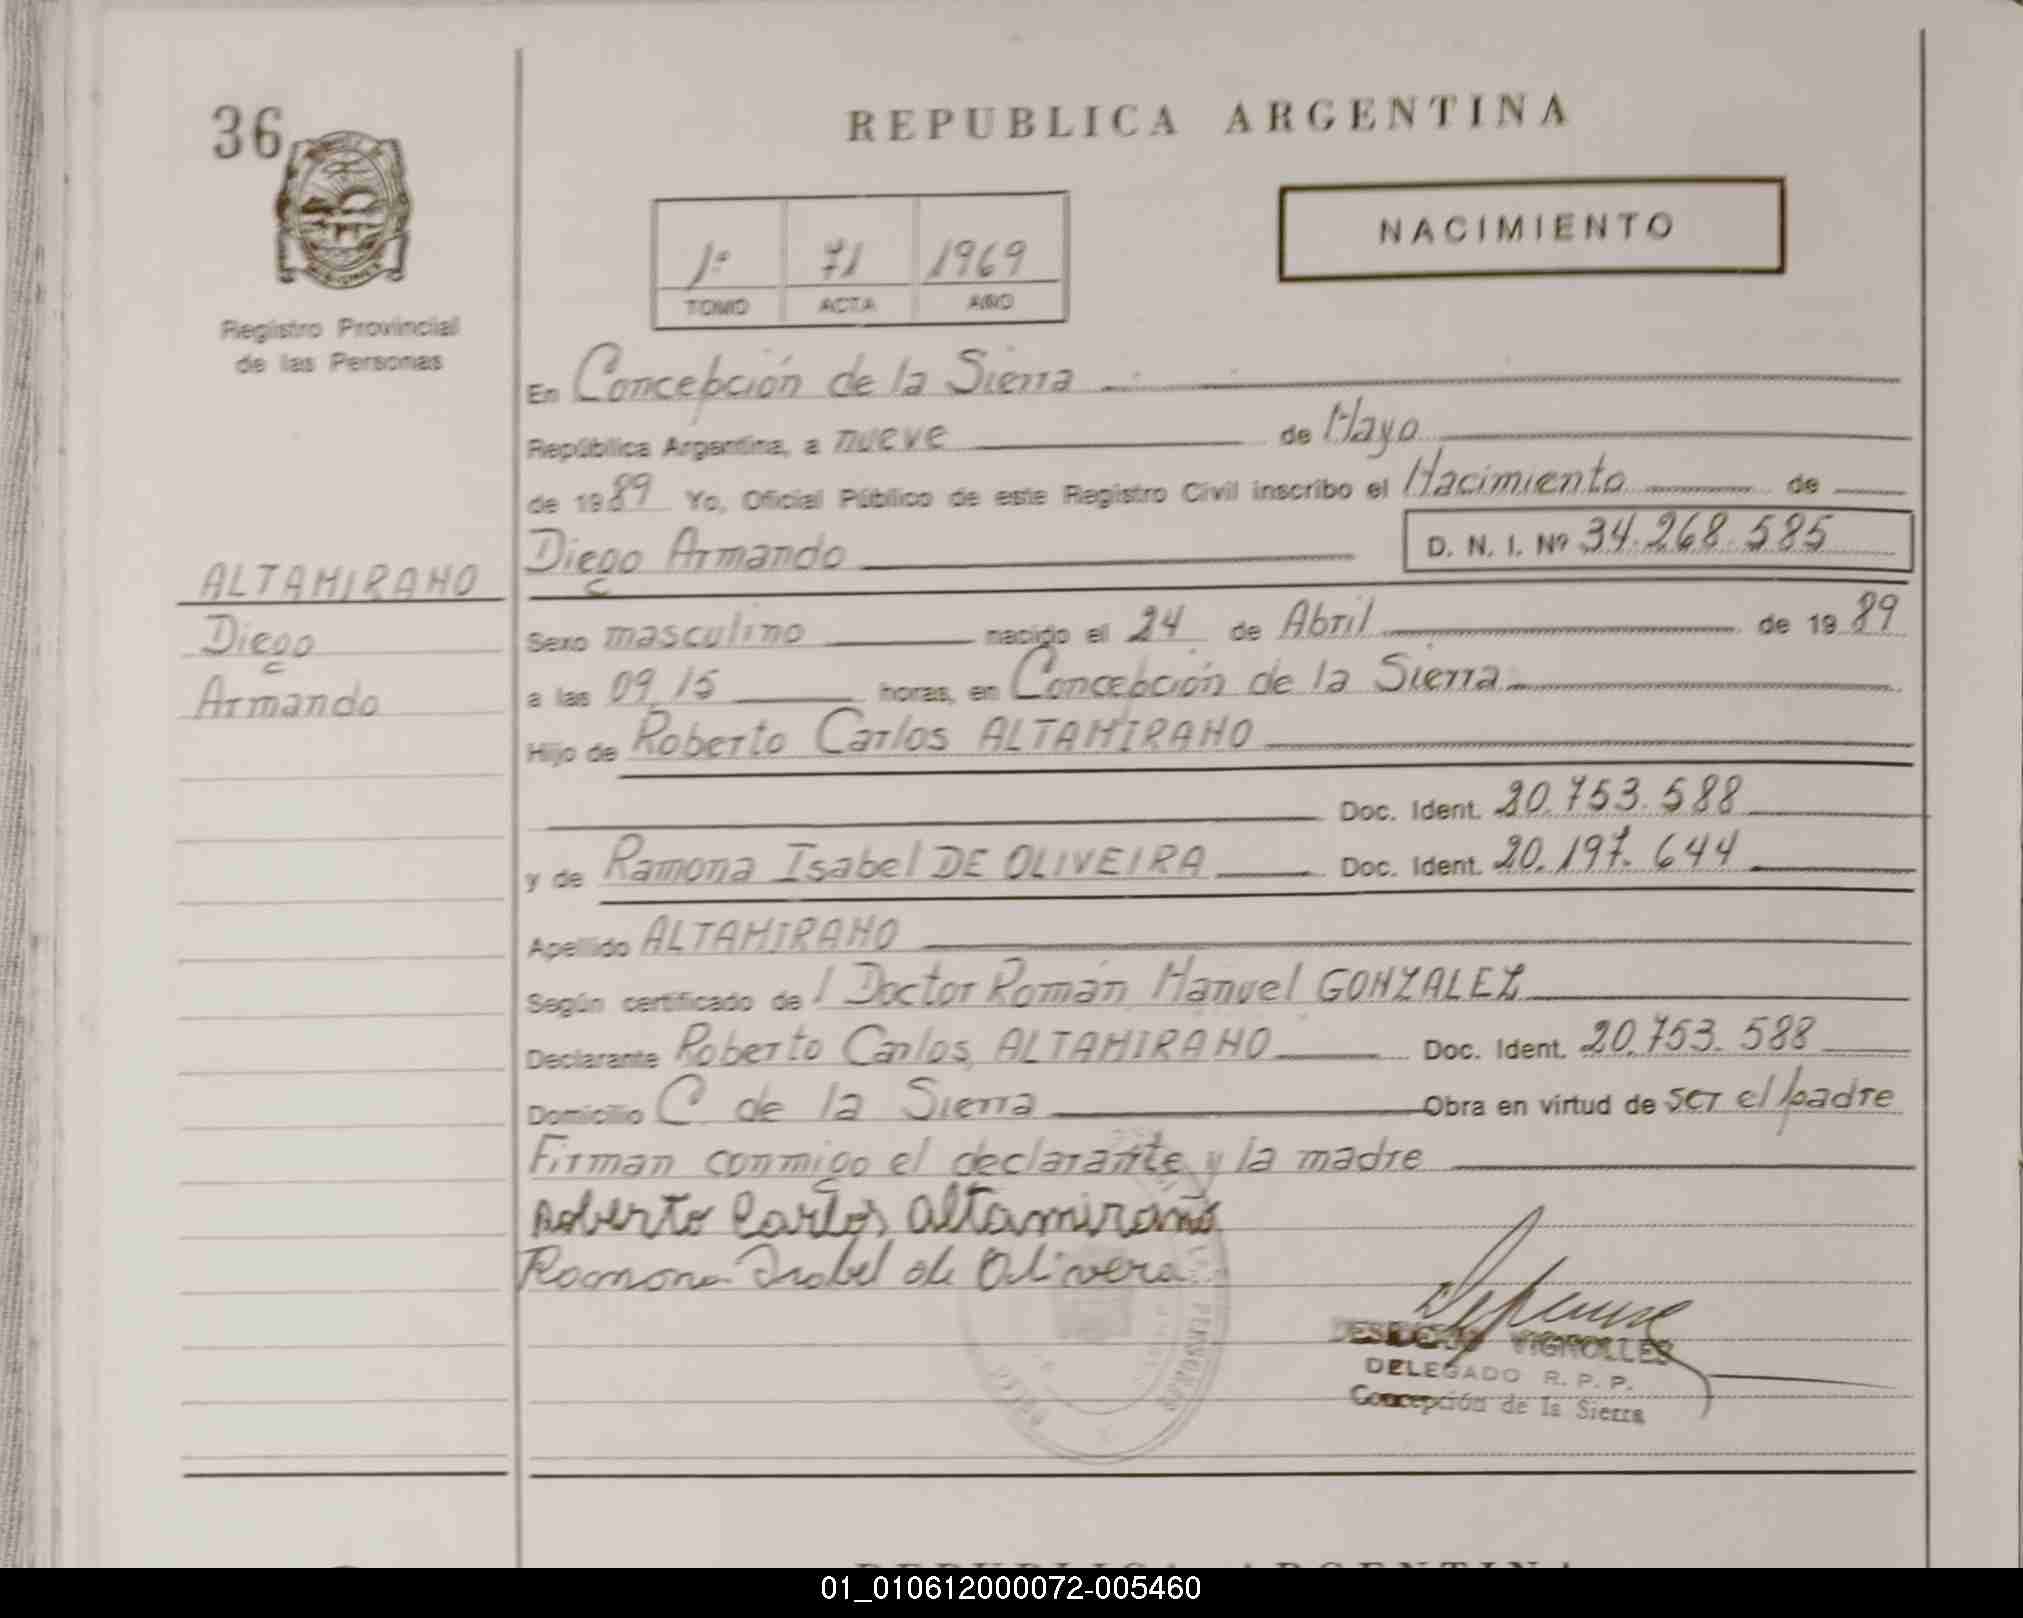 36
REPUBLICA ARGENTINA
NACIMIENTO
1º 71 1969
TOMO ACTA AÑO
Registro Provincial
de las Personas
En Concepción de la Sierra
República Argentina, a nueve de Mayo
de 1989 Yo, Oficial Público de este Registro Civil inscribo el Nacimiento de
Diego Armando D. N. I. Nº 34.268.585
ALTAMIRANO
Diego
Armando
Sexo masculino nacido el 24 de Abril de 1989
a las 09,15 horas, en Concepción de la Sierra
Hijo de Roberto Carlos ALTAMIRANO
Doc. Ident. 20.753.588
y de Ramona Isabel DE OLIVEIRA Doc. Ident. 20.197.644
Apellido ALTAMIRANO
Según certificado del Doctor Román Manuel GONZALEZ
Declarante Roberto Carlos ALTAMIRANO Doc. Ident. 20.753.588
Domicilio C. de la Sierra Obra en virtud de ser el padre
Firman conmigo el declarante y la madre
Roberto Carlos Altamirano
Ramona Isabel de Olivera
VIGNOLLES
DELEGADO R. P. P.
Concepción de la Sierra
REPUBLICA ARGENTINA
01_010612000072-005460